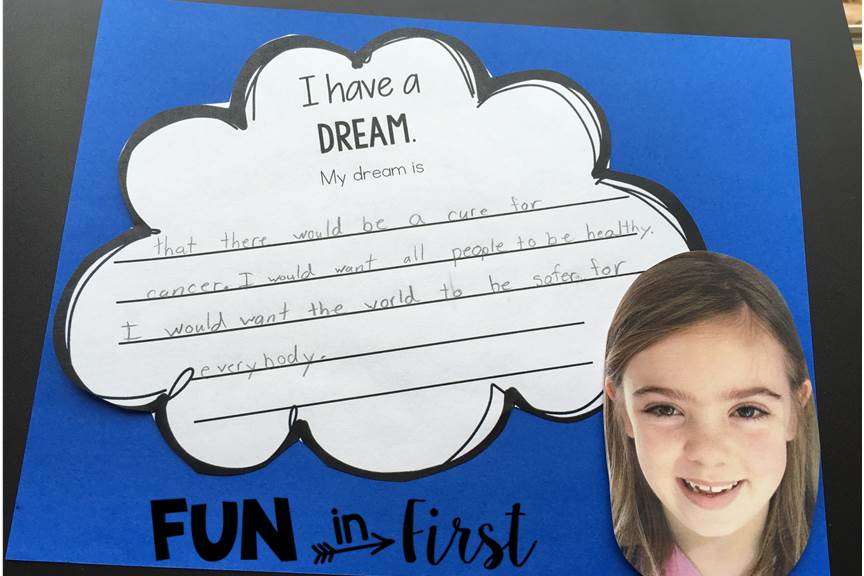 I have a
DREAM.
My dream is
that there would be a cure for
cancer. I would want all people to be healthy.
I would want the world to be safer for
everybody.
FUN in First